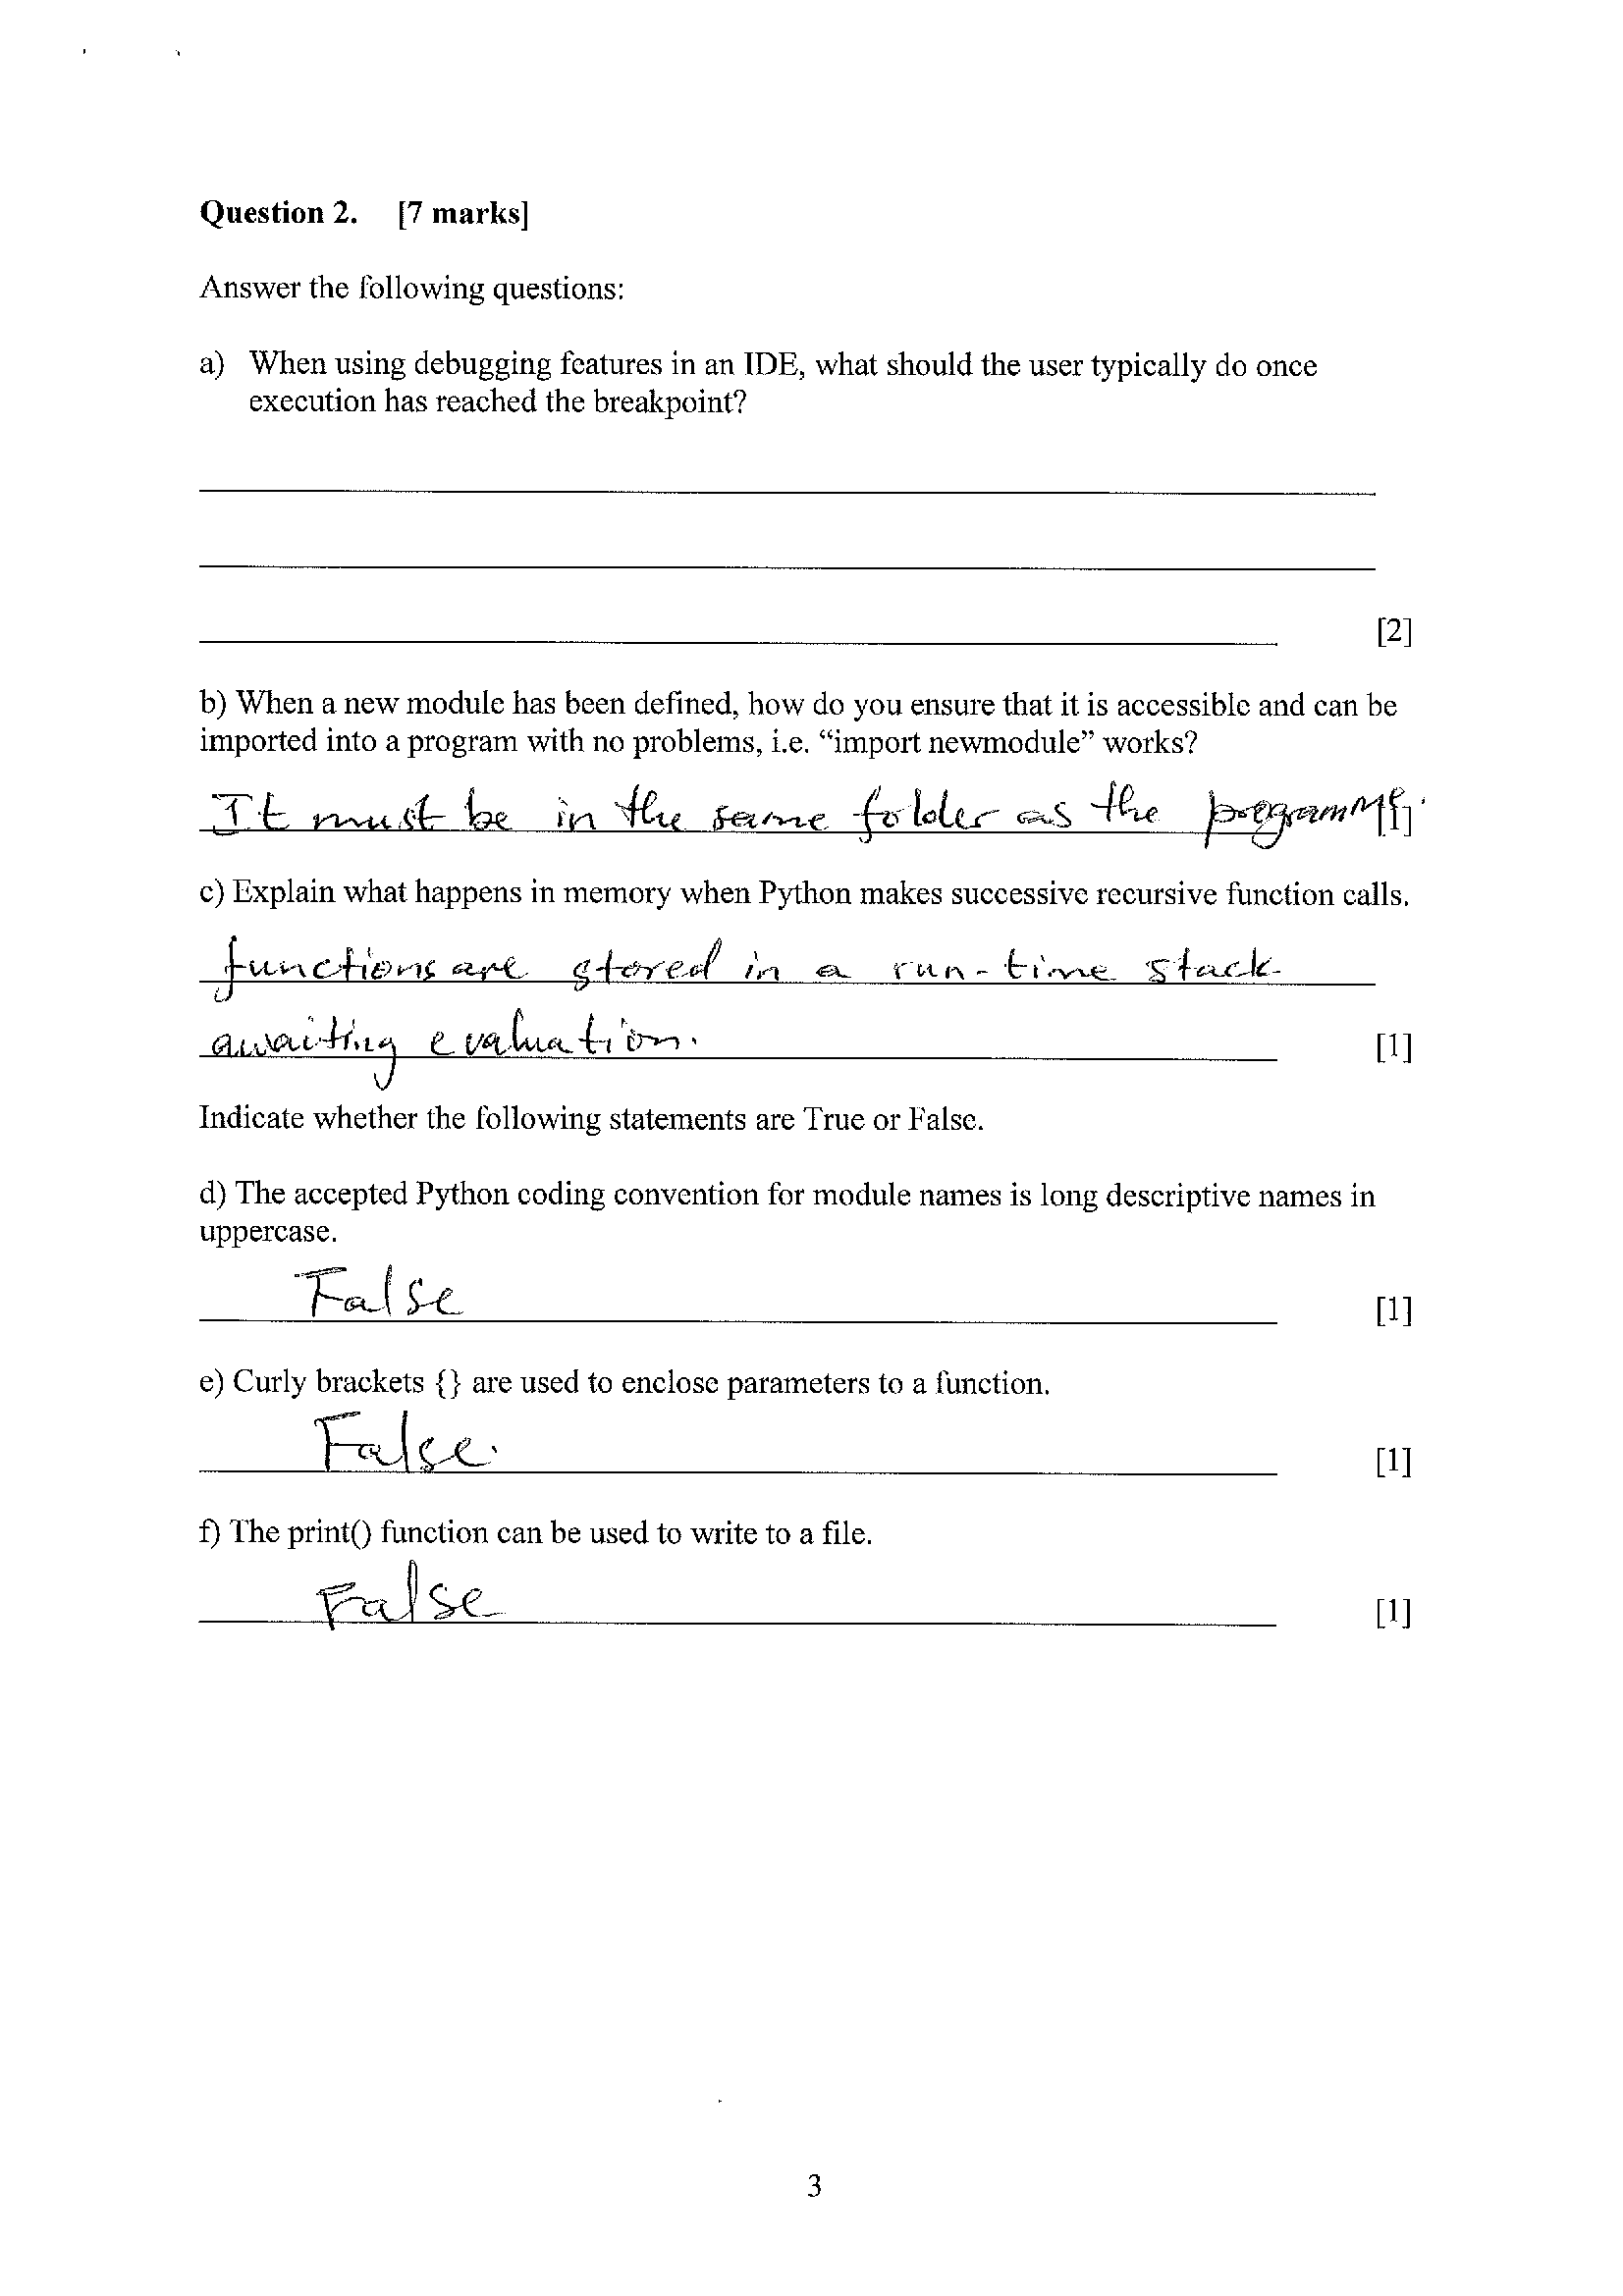 Question 2. [7 marks]
Answer the following questions:
a) When using debugging features in an IDE, what should the user typically do once
execution has reached the breakpoint?
[2]
b) When a new module has been defined, how do you ensure that it is accessible and can be
imported into a program with no problems, i.e. “import newmodule” works?
It must be in the same folder as the programme. [1]
c) Explain what happens in memory when Python makes successive recursive function calls.
functions are stored in a run-time stack
awaiting evaluation. [1]
Indicate whether the following statements are True or False.
d) The accepted Python coding convention for module names is long descriptive names in
uppercase.
False [1]
e) Curly brackets {} are used to enclose parameters to a function.
False. [1]
f) The print() function can be used to write to a file.
False [1]
3